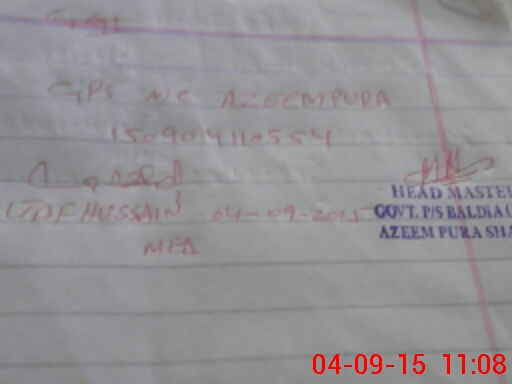 GPS NC AZEEMPURA
150904110554
LTAF HUSSAIN 04-09-2015
MEA
HEAD MASTE
GOVT. P/S BALDIA
AZEEM PURA SHA
04-09-15 11:08